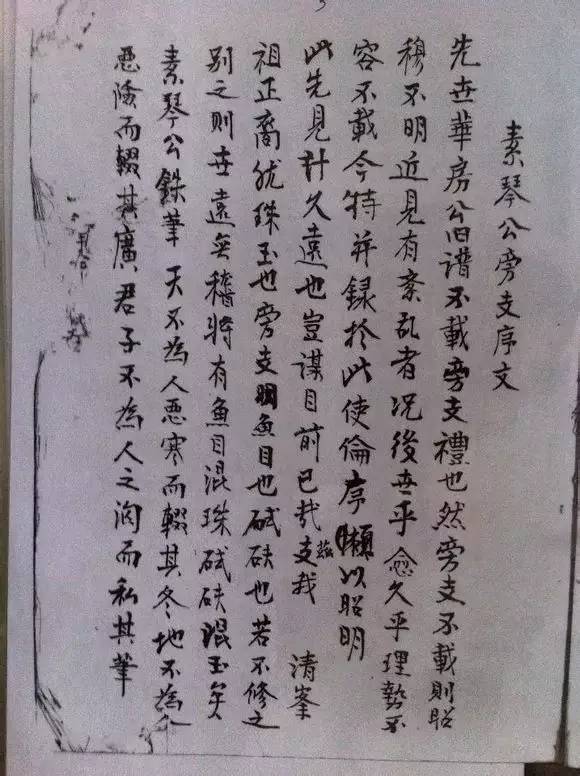 素琴公旁支序文
先世華房公旧谱不載旁支禮也然旁支不載則昭
穆不明近見有紊乱者况後世乎愈久乎理勢不
容不載今特并録於此使倫序懒以昭明
此先見計久遠也豈谋目前已哉兹支我 清峯
祖正裔犹珠玉也旁支魚目也碔砆也若不修之
别之则世遠無稽将有魚目混珠碔砆混玉矣
素琴公鉄筆 天不為人惡寒而輟其冬地不為人
惡險而輟其廣君子不為人之洶而私其筆